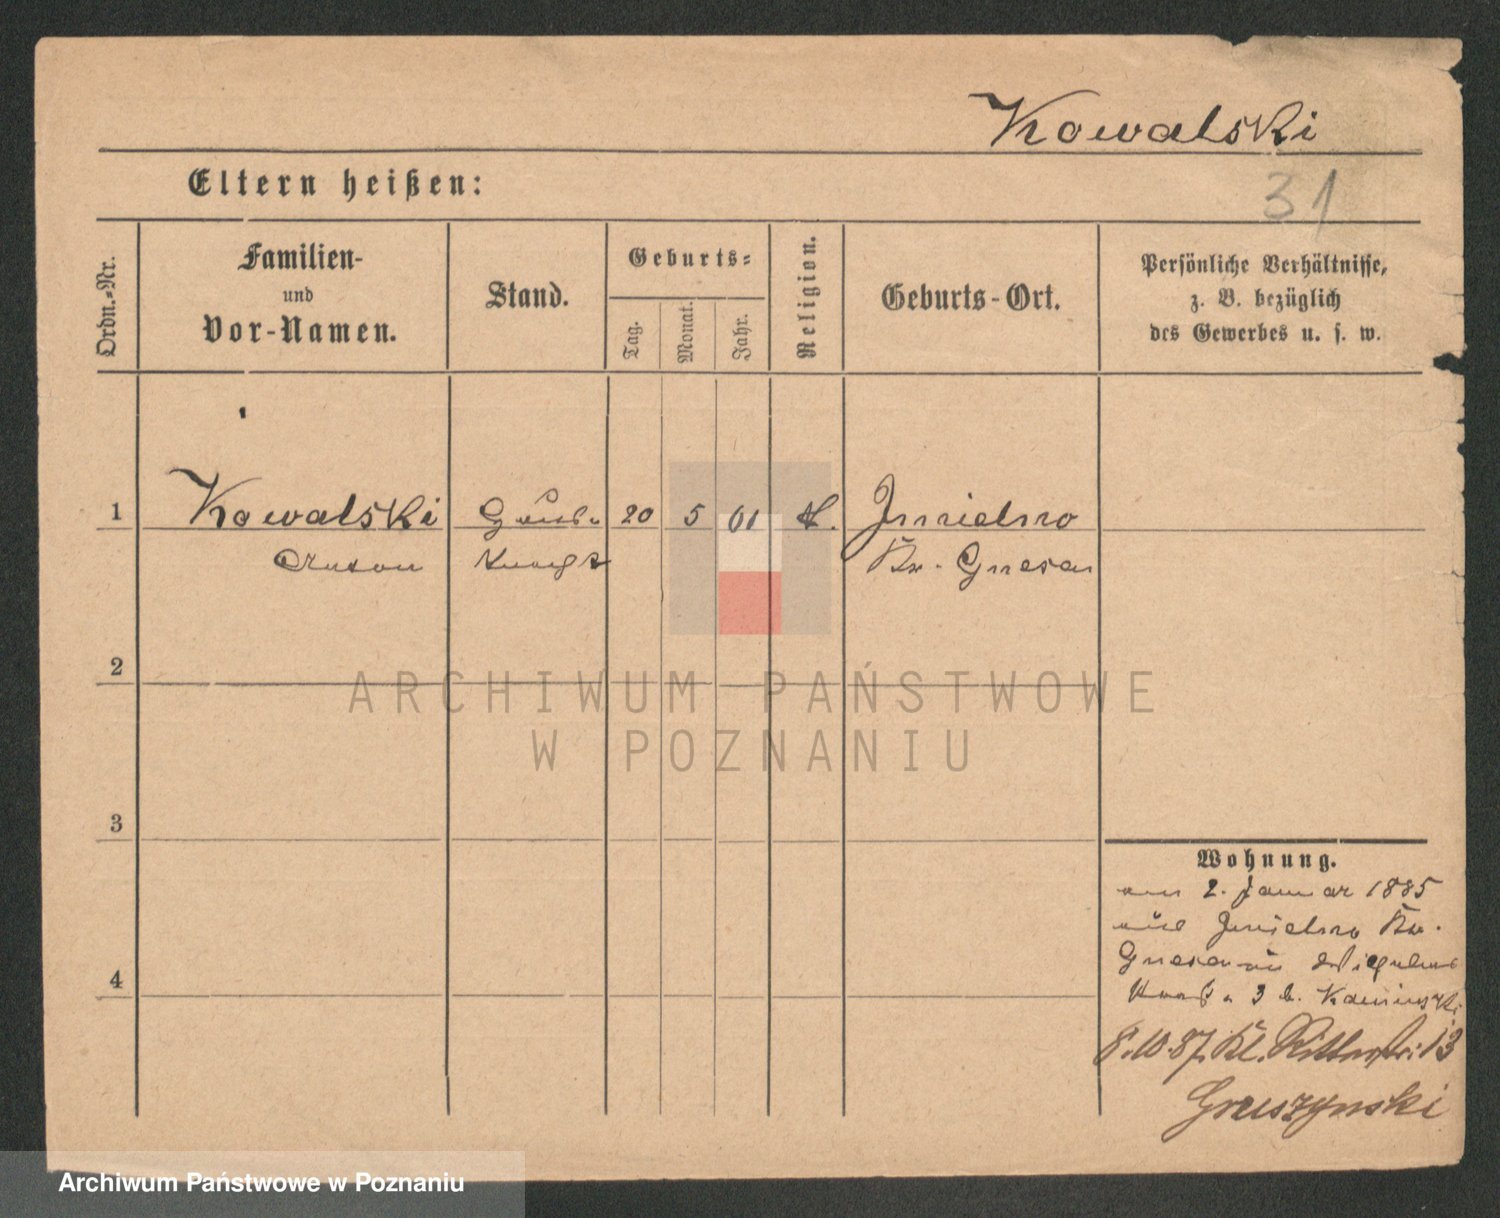 Kowalski
Eltern heißen:
31
Ordn.-Nr.
Familien-
und
Vor-Namen.
Stand.
Geburts-
Tag.
Monat.
Jahr.
Religion.
Geburts-Ort.
Persönliche Verhältnisse,
z. B. bezüglich
des Gewerbes u. s. w.
1 Kowalski 20 5 61 k. Jmielno
Anton Knecht Kr. Gnesen
2
ARCHIWUM PAŃSTWOWE
W POZNANIU
3
Wohnung.
am 2. Januar 1885
aus Jmielno Kr.
Gnesen
4
3 b. Kaminski
8.10.87. Kl. Ritterstr. 13
Gruszynski
Archiwum Państwowe w Poznaniu